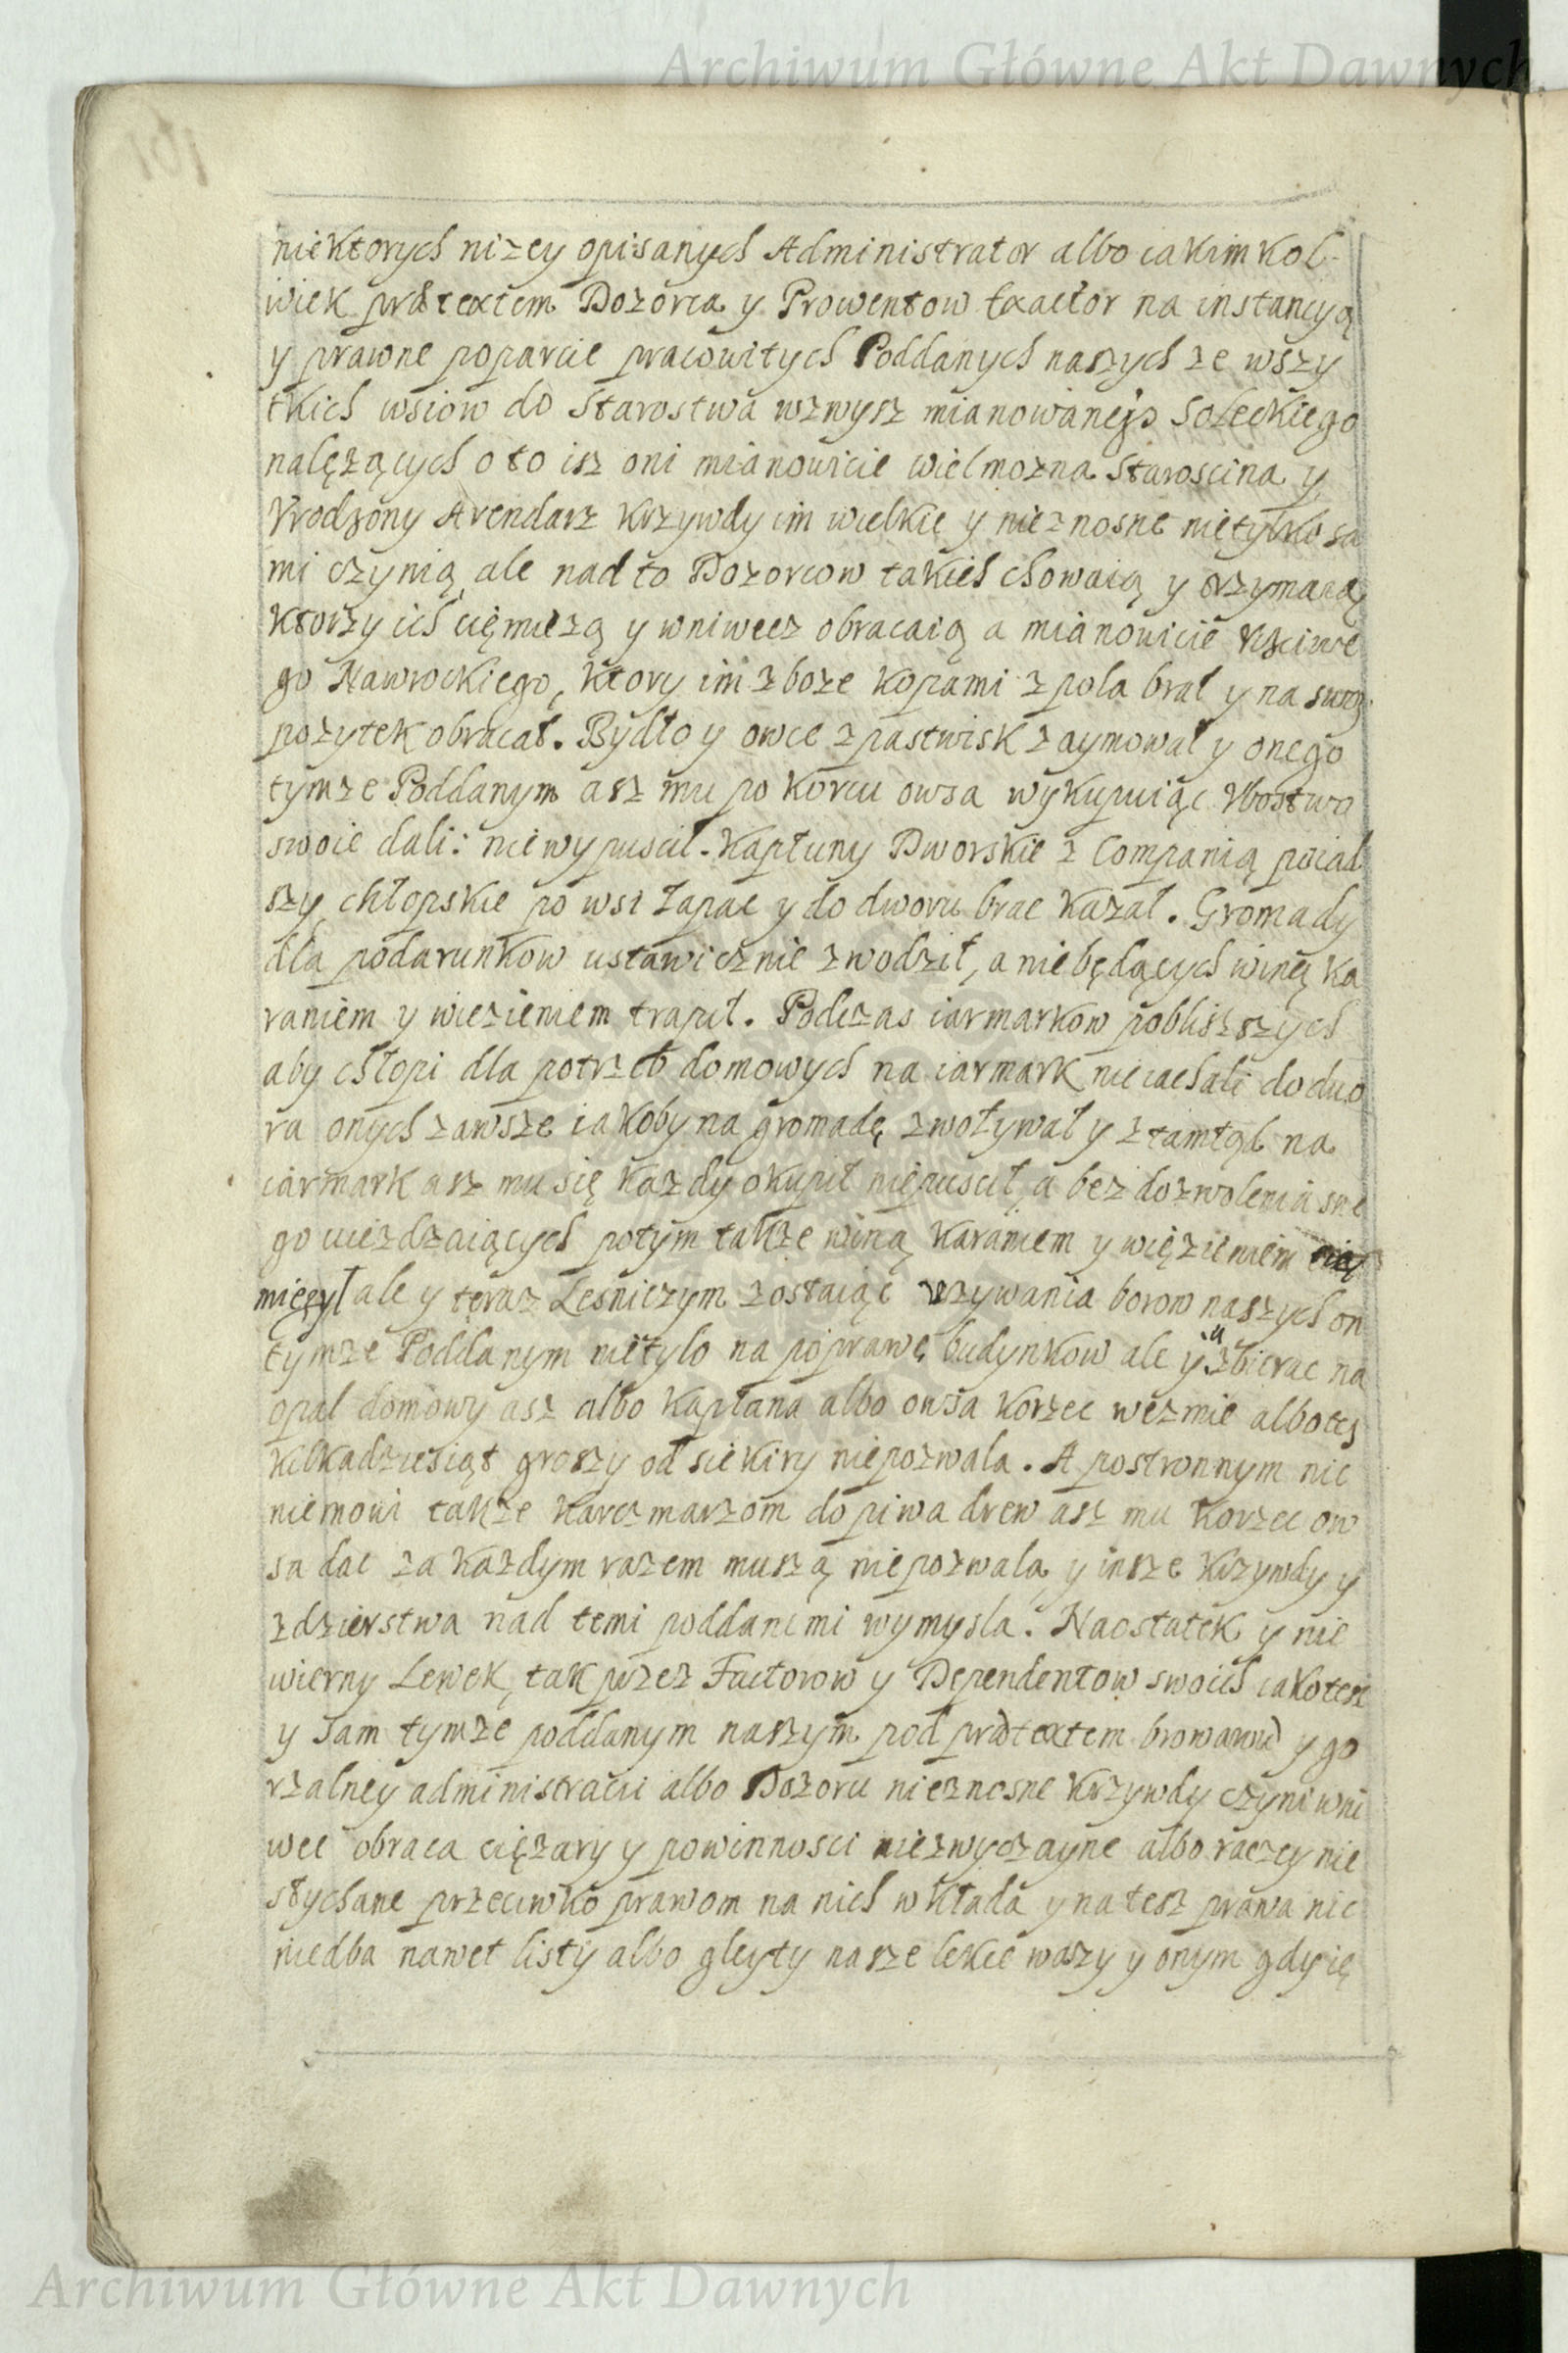 Archiwum Główne Akt Dawnych
niektorych nizey opisanych Administrator albo iakimkol-
wiek prætextem Dozorca y Prowentow Exactor na instancyą
y prawne poparcie pracowitych Poddanych naszych ze wszy
tkich wsiow do Starostwa wzwysz mianowanego Soleckiego
nalęzących o to isz oni mianowicie wielmozna Staroscina y
Vrodzony Arendarz Krzywdy im wielkie y nieznosne nietylko sa
mi czynią ale nad to Dozorcow takich chowaią y trzymaią
Ktorzy ich ciemiezą y wniwecz obracaią a mianowicie Vsciwe
go Nawrockiego, Ktory im zboze Kopami z pola brał y na swoy
pozytek obracał. Bydło y owce z pastwisk zaymował y onego
tymze Poddanym asz mu po Korcu owsa wykupuiąc Vbostwo
swoie dali: niewypuscił. Kapłuny Dworskie z Companią poiad
szy chłopskie po wsi łapac y do dworu brac Kazał. Gromady
dla podarunkow ustawicznie zwodził, a niebędących winą ka
raniem y wiezieniem trapił. Podczas iarmarkow poblisszych
aby chłopi dla potrzeb domowych na iarmark nieiachali do dwo
ra onych zawsze iakoby na gromadę zwoływał y ztamtąd na
iarmark asz mu się kazdy okupił niepuscił, a bez dozwolenia swe
go uiezdzaiących potym takze winą Karaniem y więzieniem cię
mięzył ale y teraz Lesniczym zostaiąc vzywania borow naszych on
tymze Poddanym nietylo na poprawę budynkow ale y u zbierac na
opał domowy asz albo Kapłana albo owsa Korzec wezmie albo tesz
Kilkadziesiąt groszy od siekiry niepozwala. A postronnym nic
niemowi takze Karczmarzom do piwa drew asz mu Korzec ow
sa dac za Kazdym razem muszą niepozwala y insze Krzywdy y
zdzierstwa nad temi poddanemi wymysla. Naostatek y nie
wierny Lewek, tak przez Factorow y Dependentow swoich iako tesz
y sam tymze poddanym naszym pod prætextem browaru y go
rzalney administracii albo Dozoru nieznosne Krzywdy czyni wni
wec obraca ciężary y powinnosci niezwyczayne albo raczey nie
słychane przeciwko prawom na nich wkłada y na tesz prawa nic
niedba nawet listy albo gleyty nasze lekce wazy y onym gdy ię
Archiwum Główne Akt Dawnych